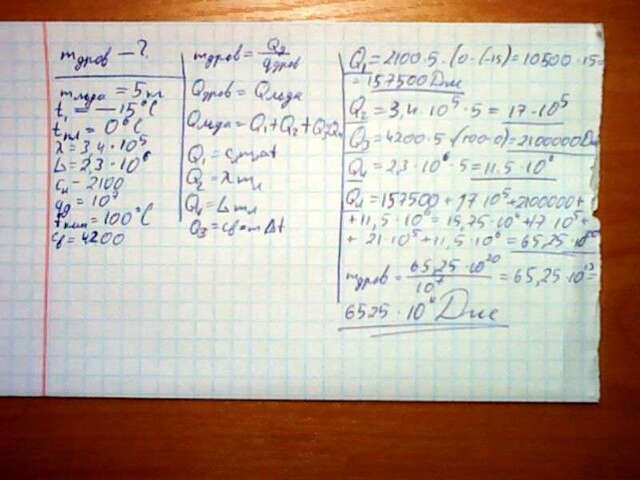 mдров — ?
mльда = 5 кг
t₁ = −15°C
tпл = 0°C
λ = 3,4 · 10⁵
L = 2,3 · 10⁶
cл − 2100
qд = 10⁷
tкип = 100°C
cв = 4200
mдров = Qл/qдров
Qдров = Qльда
Qльда = Q₁ + Q₂ + Q₃
Q₁ = cлm∆t
Q₂ = λ mл
Q₄ = L mл
Q₃ = cв m ∆t
Q₁ = 2100 · 5 · (0 − (−15)) = 10500 · 15 =
= 157500 Дж
Q₂ = 3,4 · 10⁵ · 5 = 17 · 10⁵
Q₃ = 4200 · 5 · (100−0) = 2100000 Дж
Q₄ = 2,3 · 10⁶ · 5 = 11,5 · 10⁶
Qл = 157500 + 17 · 10⁵ + 2100000 +
+ 11,5 · 10⁶ = 15,75 · 10⁴ + 17 · 10⁵ +
+ 21 · 10⁵ + 11,5 · 10⁶ = 65,25 · 10²⁰
mдров = 65,25 · 10²⁰/10⁷ = 65,25 · 10¹³ =
6525 · 10¹¹ Дж